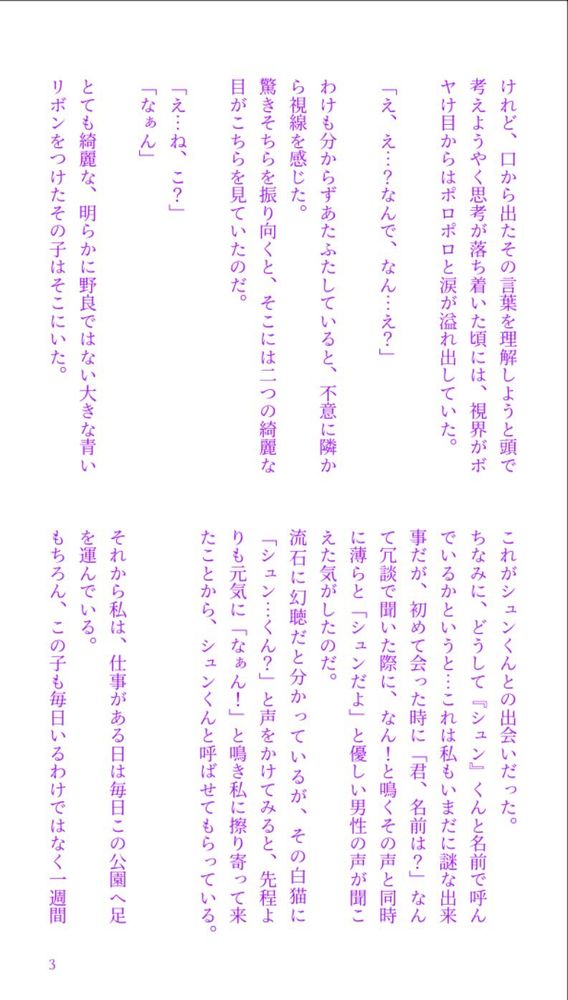 けれど、口から出たその言葉を理解しようと頭で
考えようやく思考が落ち着いた頃には、視界がボ
ヤけ目からはポロポロと涙が溢れ出していた。
「え、え…？なんで、なん…え？」
わけも分からずあたふたしていると、不意に隣か
ら視線を感じた。
驚きそちらを振り向くと、そこには二つの綺麗な
目がこちらを見ていたのだ。
「え…ね、こ？」
「なぁん」
とても綺麗な、明らかに野良ではない大きな青い
リボンをつけたその子はそこにいた。
これがシュンくんとの出会いだった。
ちなみに、どうして『シュン』くんと名前で呼ん
でいるかというと…これは私もいまだに謎な出来
事だが、初めて会った時に「君、名前は？」なん
て冗談で聞いた際に、なん！と鳴くその声と同時
に薄らと「シュンだよ」と優しい男性の声が聞こ
えた気がしたのだ。
流石に幻聴だと分かっているが、その白猫に
「シュン…くん？」と声をかけてみると、先程よ
りも元気に「なぁん！」と鳴き私に擦り寄って来
たことから、シュンくんと呼ばせてもらっている。
それから私は、仕事がある日は毎日この公園へ足
を運んでいる。
もちろん、この子も毎日いるわけではなく一週間
3